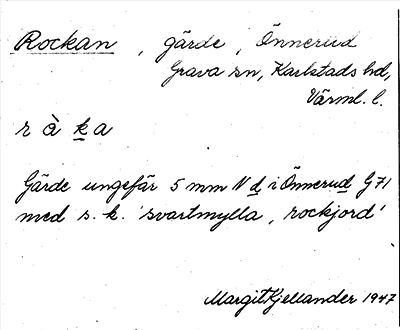 Rockan, gärde, Önnerud
Grava sn, Karlstads hd,
Värml. l.
r å̀ k a
Gärde ungefär 5 mm N d i Önnerud G 71
med s.k. 'svartmylla, rockjord'
Margit Kjellander 1947